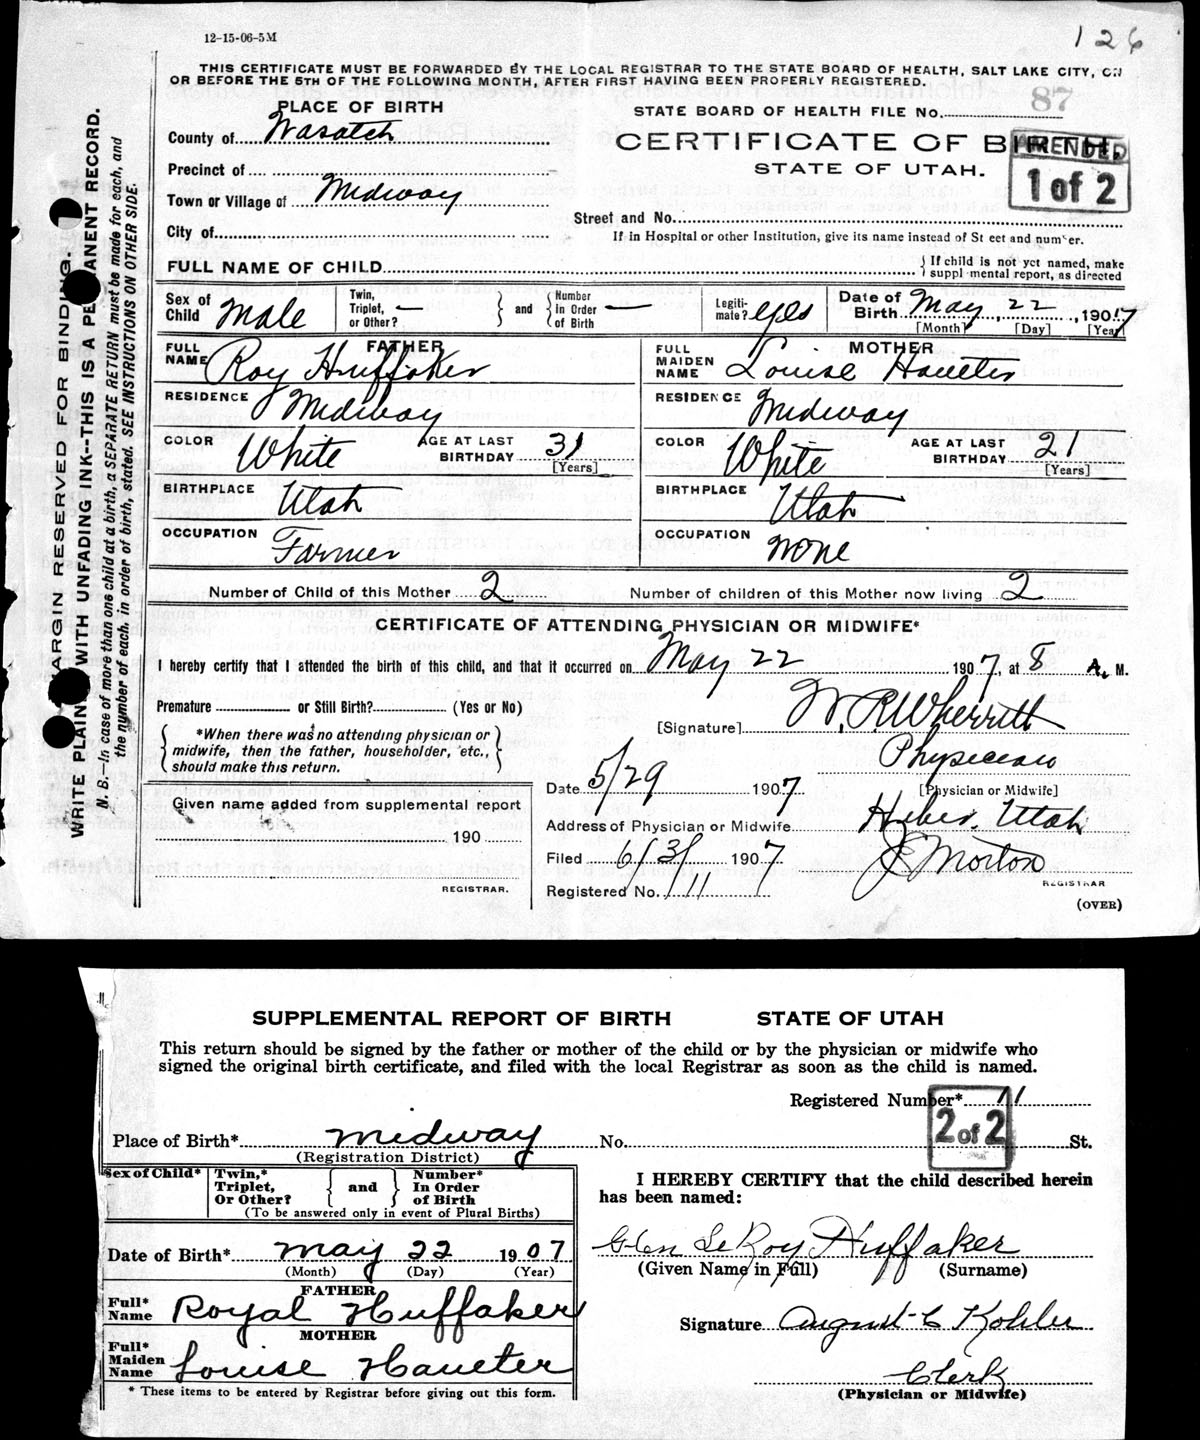 12-15-06-5M
126
THIS CERTIFICATE MUST BE FORWARDED BY THE LOCAL REGISTRAR TO THE STATE BOARD OF HEALTH, SALT LAKE CITY, ON
OR BEFORE THE 5TH OF THE FOLLOWING MONTH, AFTER FIRST HAVING BEEN PROPERLY REGISTERED.
MARGIN RESERVED FOR BINDING.
WRITE PLAINLY WITH UNFADING INK--THIS IS A PERMANENT RECORD.
N. B.—In case of more than one child at a birth, a SEPARATE RETURN must be made for each, and
the number of each, in order of birth, stated. SEE INSTRUCTIONS ON OTHER SIDE.
PLACE OF BIRTH
County of Wasatch
Precinct of
Town or Village of Midway
City of
STATE BOARD OF HEALTH FILE No. 87
CERTIFICATE OF BIRTH.
AMENDED
1 of 2
STATE OF UTAH.
Street and No.
If in Hospital or other Institution, give its name instead of St eet and number.
FULL NAME OF CHILD
If child is not yet named, make
suppl mental report, as directed
Sex of Child Male
Twin, Triplet, or Other? —
and
Number In Order of Birth —
Legitimate? yes
Date of Birth May, 22, 1907
[Month] [Day] [Year]
FATHER
FULL NAME Roy Huffaker
RESIDENCE Midway
COLOR White AGE AT LAST BIRTHDAY 31 [Years]
BIRTHPLACE Utah
OCCUPATION Farmer
MOTHER
FULL MAIDEN NAME Louise Haueter
RESIDENCE Midway
COLOR White AGE AT LAST BIRTHDAY 21 [Years]
BIRTHPLACE Utah
OCCUPATION none
Number of Child of this Mother 2 Number of children of this Mother now living 2
CERTIFICATE OF ATTENDING PHYSICIAN OR MIDWIFE*
I hereby certify that I attended the birth of this child, and that it occurred on May 22 1907, at 8 A. M.
Premature or Still Birth? (Yes or No)
*When there was no attending physician or
midwife, then the father, householder, etc.,
should make this return.
[Signature] W. R. Wherritt
Physician
[Physician or Midwife]
Date 5/29 1907
Address of Physician or Midwife Heber, Utah
Filed 6/3/ 1907 J E Morton
REGISTRAR
Registered No. 11
(OVER)
Given name added from supplemental report
190
REGISTRAR.
11
SUPPLEMENTAL REPORT OF BIRTH STATE OF UTAH
This return should be signed by the father or mother of the child or by the physician or midwife who
signed the original birth certificate, and filed with the local Registrar as soon as the child is named.
Registered Number* 11
2 of 2
Place of Birth* Midway No. St.
(Registration District)
Sex of Child*
Twin,* Triplet, Or Other?
and
Number* In Order of Birth
(To be answered only in event of Plural Births)
Date of Birth* May 22 1907
(Month) (Day) (Year)
FATHER
Full* Name Royal Huffaker
MOTHER
Full* Maiden Name Louise Haueter
* These items to be entered by Registrar before giving out this form.
I HEREBY CERTIFY that the child described herein
has been named:
Glen LeRoy Huffaker
(Given Name in Full) (Surname)
Signature August C Kohler
Clerk
(Physician or Midwife)